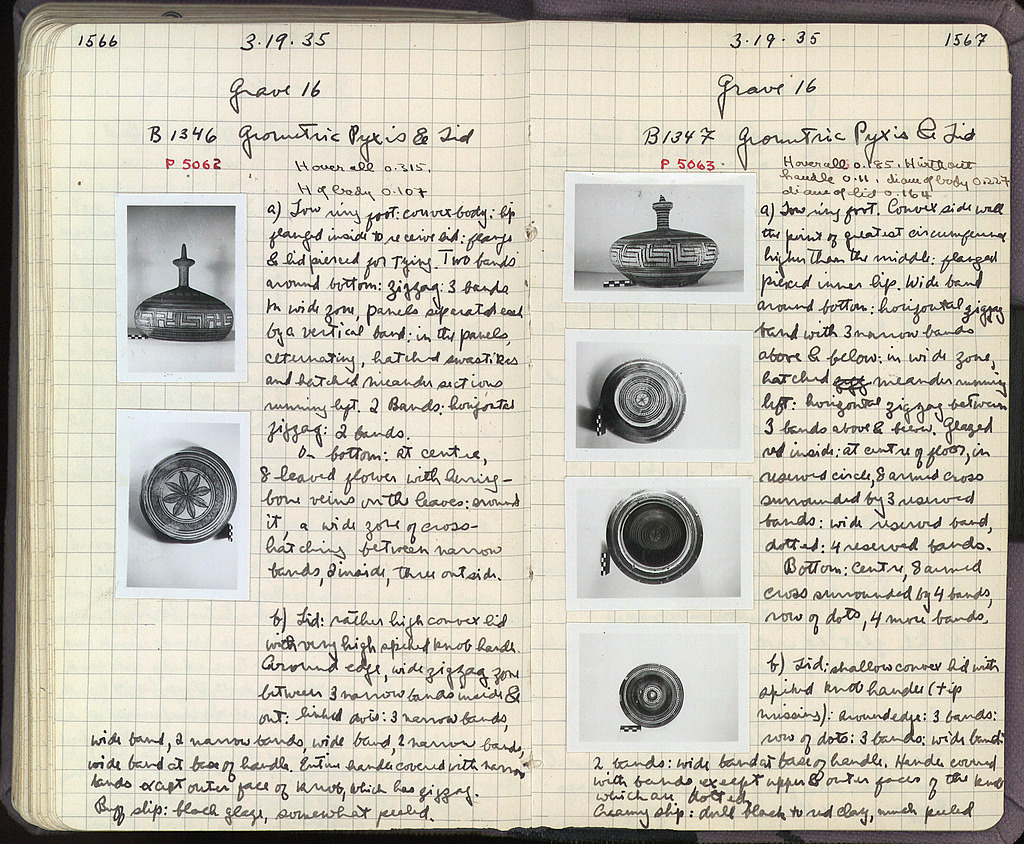 1566
3·19·35
Grave 16
B 1346 Geometric Pyxis & Lid
P 5062
H overall 0.315.
H of body 0.107
a) Low ring foot: convex body: lip
flanged inside to receive lid: flange
& lid pierced for tying. Two bands
around bottom: zigzag: 3 bands
In wide zone, panels separated each
by a vertical band: in the panels,
alternating, hatched swastikas
and hatched meander sections
running left. 2 Bands: horizontal
zigzag: 2 bands.
On bottom: at centre,
8 leaved flower with herring-
bone veins on the leaves: around
it, a wide zone of cross-
hatching between narrow
bands, 2 inside, three outside.
b) Lid: rather high convex lid
with very high spiked knob handle.
Around edge, wide zigzag zone
between 3 narrow bands inside &
out: linked dots: 3 narrow bands,
wide band, 2 narrow bands, wide band 2 narrow bands,
wide band at base of handle. Entire handle covered with narrow
bands except outer face of knob, which has zigzag.
Buff slip: black glaze, somewhat peeled.
3·19·35
1567
Grave 16
B 1347 Geometric Pyxis & Lid
P 5063
H overall 0.185. H without
handle 0.11. diam of body 0.227
diam of lid
a) Low ring foot. Convex side wall
the point of greatest circumference
higher than the middle: flanged
pierced inner lip. Wide band
around bottom: horizontal zigzag
band with 3 narrow bands
above & below: in wide zone,
hatched meander running
left: horizontal zigzag between
3 bands above & below. Glazed
red inside: at centre of floor, in
reserved circle, 8 armed cross
surrounded by 3 reserved
bands: wide reserved band,
dotted: 4 reserved bands.
Bottom: centre, 8 armed
cross surrounded by 4 bands,
row of dots, 4 more bands.
b) Lid: shallow convex lid with
spiked knob handle (tip
missing): around edge: 3 bands:
row of dots: 3 bands: wide band:
2 bands: wide band at base of handle. Handle covered
with bands except upper & outer faces of the knob
which are dotted.
Creamy slip: dull black to red clay, much peeled